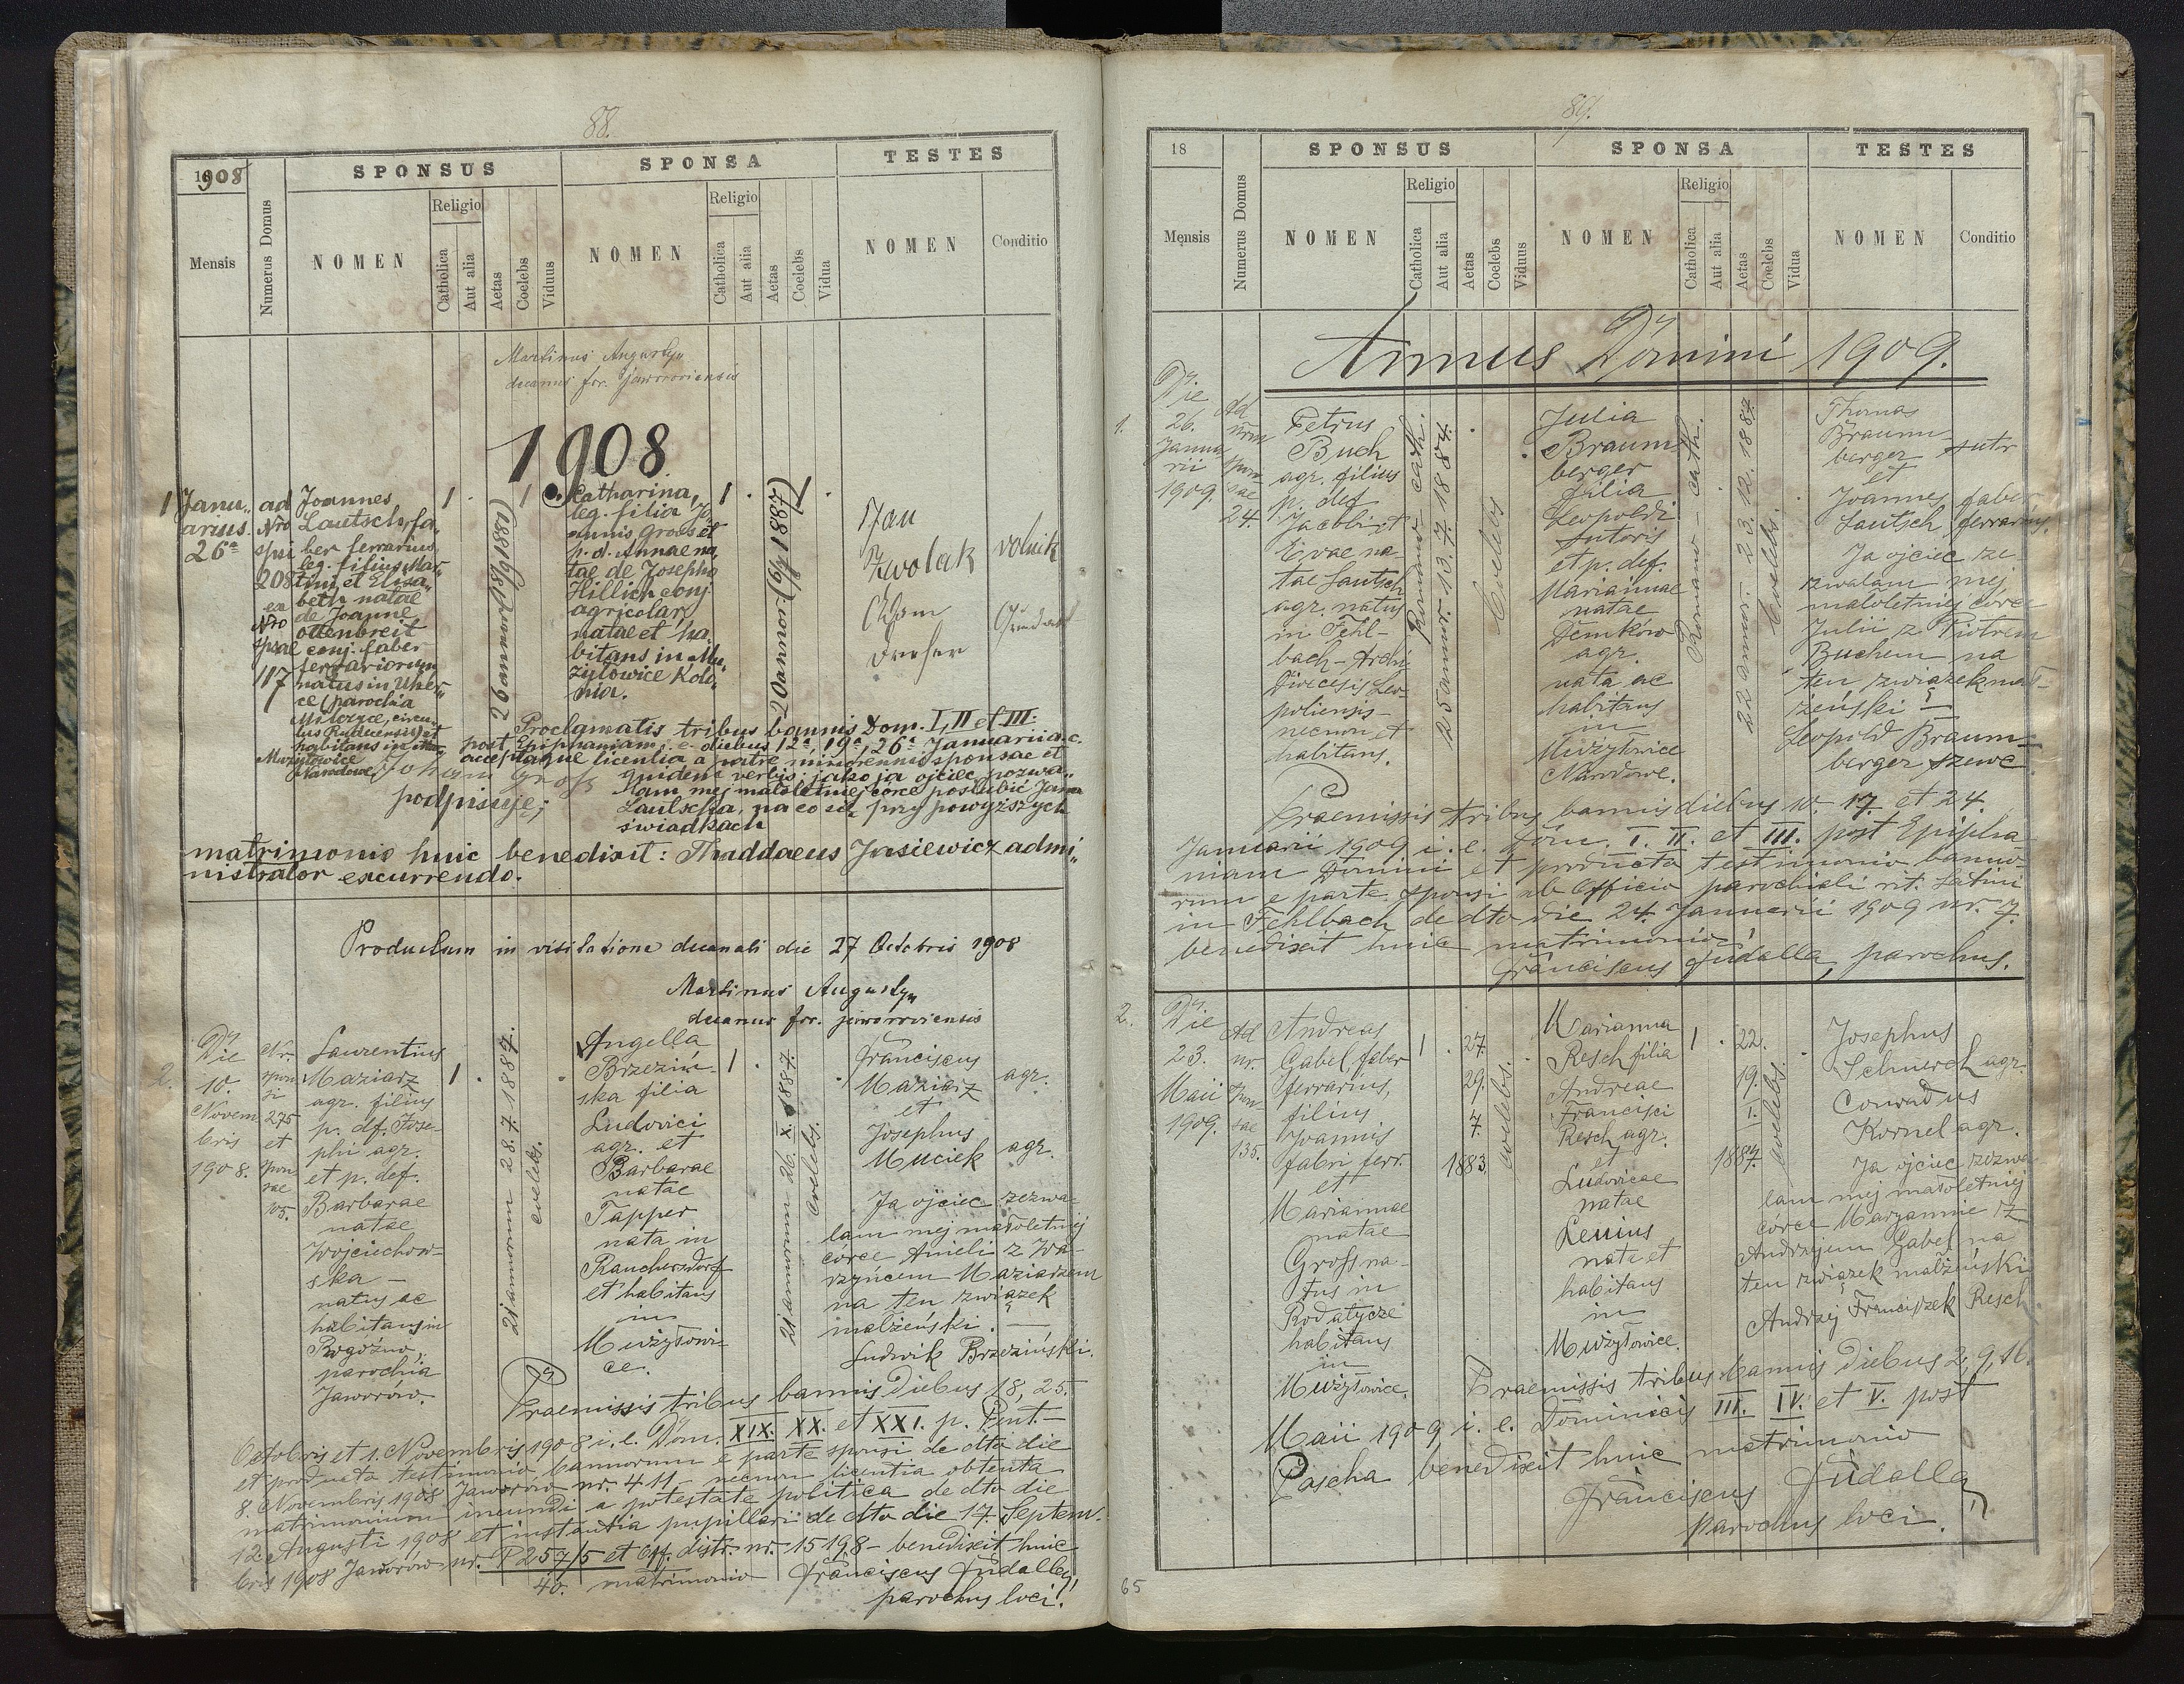 88.
1908
SPONSUS
SPONSA
TESTES
Mensis
Numerus Domus
NOMEN
Religio
Catholica
Aut alia
Aetas
Coelebs
Viduus
NOMEN
Religio
Catholica
Aut alia
Aetas
Coelebs
Vidua
NOMEN
Conditio
Martinus Augustyn
decanus for. jaworoviensis
1908
1 Janu„
arius
26a
ad
Nro
spsi
208
ex
Nro
spsae
117
Joannes
Lautsch, fa„
ber ferrarius,
leg. filius Mar„
tini et Elisa„
beth natae
de Joanne
Ottenbreit
conj. faber
ferrariorum
natus in Uher„
ce (parochia
Milczyce, circu„
lus Rudecensis) et
habitans in
Mużyłowice
Narodowe
1
26 annor. (18/9 1881)
1
Catharina,
leg. filia Jo„
annis Gross et
p. d. Annae na„
tae de Josepho
Hillich conj.
agricolar.
natae et ha„
bitans in Mu„
żyłowice Kolo„
nia.
1
20 annor. (6/4 1887)
1
Jan
Zwolak
rolnik
Proclamatis tribus bannis Dom. I, II et III.
post Epiphaniam i. e. diebus 12a, 19a, 26a Januarii a. c.
acceptaque licentia a patre minorennis sponsae et
quidem verbis: jako ja ojciec pozwa„
lam mej małoletniej córce poślubić Jana
Lautscha, na co się przy powyższych
świadkach
podpisuję;
Johann Gross
matrimonio huic benedixit: Thaddaeus Jasiewicz admi„
nistrator excurrendo.
Productum in visitatione decanali die 27 Octobris 1908
Martinus Augustyn
decanus for. jaworoviensis
2.
Die
10.
Novem
bris
1908.
Nr.
spon
si
275
et
spon
sae
105.
Laurentius
Maziarz
agr. filius
p. df. Jose-
phi agr.
et p. def.
Barbarae
natae
Wojciechow-
ska -
natus ac
habitans in
Rogóźno,
parochia
Jaworów.
1
21 annorum 28. 7. 1887.
coelebs.
Angella
Brzeziń-
ska filia
Ludovici
agr. et
Barbarae
natae
Tapper
nata in
Rauchersdorf
et habitans
in
Mużyłowi-
ce.
1
21 annorum 26. X. 1887.
coelebs.
Franciscus
Maziarz
agr.
et
Josephus
Muciek
agr.
Ja ojciec zezwa-
lam mej małoletniej
córce Anieli z Wa-
rzyńcem Maziarzem
na ten związek
małżeński. —
Ludwik Brzeziński.
Praemissis tribus bannis diebus 18, 25.
Octobris et 1. Novembris 1908 i. e. Dom. XIX. XX. et XXI. p. Pent.-
et producta testimonio bannorum e parte sponsi de dto die
8. Novembris 1908 Jaworów nr. 411 - necnon licentia obtenta
matrimonium ineundi a potestate politica de dto die
12. Augusti 1908 et instantia pupillari de dto die 17. Septem.
bris 1908 Jaworów nr. P 257/5 et Off. distr. nr. 15198 - benedixit huic
40. matrimonio Franciscus Judalla,
parochus loci!
89.
18
SPONSUS
SPONSA
TESTES
Mensis
Numerus Domus
NOMEN
Religio
Catholica
Aut alia
Aetas
Coelebs
Viduus
NOMEN
Religio
Catholica
Aut alia
Aetas
Coelebs
Vidua
NOMEN
Conditio
Annus Domini 1909.
1.
Die
26.
Janua
rii
1909.
Ad
nrm
spon
sae
24.
Petrus
Buch
agr. filius
p. def.
Jacobi et
Evae na-
tae Lautsch
agr. natus
in Fehl-
bach - Archi
dioecesis Leo-
poliensis -
necnon et
habitans.
Romano - cath.
25 annor. 13. 7. 1884.
Coelebs
Julia
Braun-
berger
filia
Leopoldi
sutoris
et p. def.
Mariannae
natae
Demków
agr.
nata ac
habitans
in
Mużyłowice
Narodowe.
Romano - cath.
22 annor. - 23. 12. 1887.
Coelebs.
Thomas
Braunn
berger
sutr
et
Joannes
Lautsch
faber
ferrarius,
Ja ojciec ze
zwalam mej
małoletniej córce
Julii z Piotrem
Buchem na
ten związek mał-
żeński —
Leopold Braun-
berger szewc
Praemissis tribus bannis diebus 10. 17. et 24.
Januarii 1909 i. e. Dom. I. II. et III. post Epipha-
niam Domini et producta testimonio banno-
rum e parte sponsi ab Officio parochiali rit. latini
in Fehlbach de dto die 24. Januarii 1909 nr. 7.
benedixit huic matrimonio
Franciscus Judalla, parochus.
2.
Die
23.
Maii
1909.
Ad
nr.
spon-
sae
135.
Andreas
Gabel, faber
ferrarius,
filius
Joannis
fabri ferr.
et
Mariannae
natae
Gross na-
tus in
Rodatycze
habitans
in
Mużyłowice.
1
27.
29.
4.
1883.
coelebs.
Marianna
Resch filia
Andreae
Francisci
Resch agr.
et
Ludovicae
natae
Lenius
nata et
habitans
in
Mużyłowice.
1
22.
19.
1.
1887.
coelebs.
Josephus
Schmerch agr.
Conradus
Kornel agr.
Ja ojciec zezwa
lam mej małoletniej
córce Maryannie z
Andrzejem Gabel na
ten związek małżeński
Andrzej Franciszek Resch
Praemissis tribus bannis diebus 2, 9, 16.
Maii 1909 i. e. Dominicis III. IV. et V. post
Pascha benedixit huic matrimonio
Franciscus Judalla,
parochus loci.
65